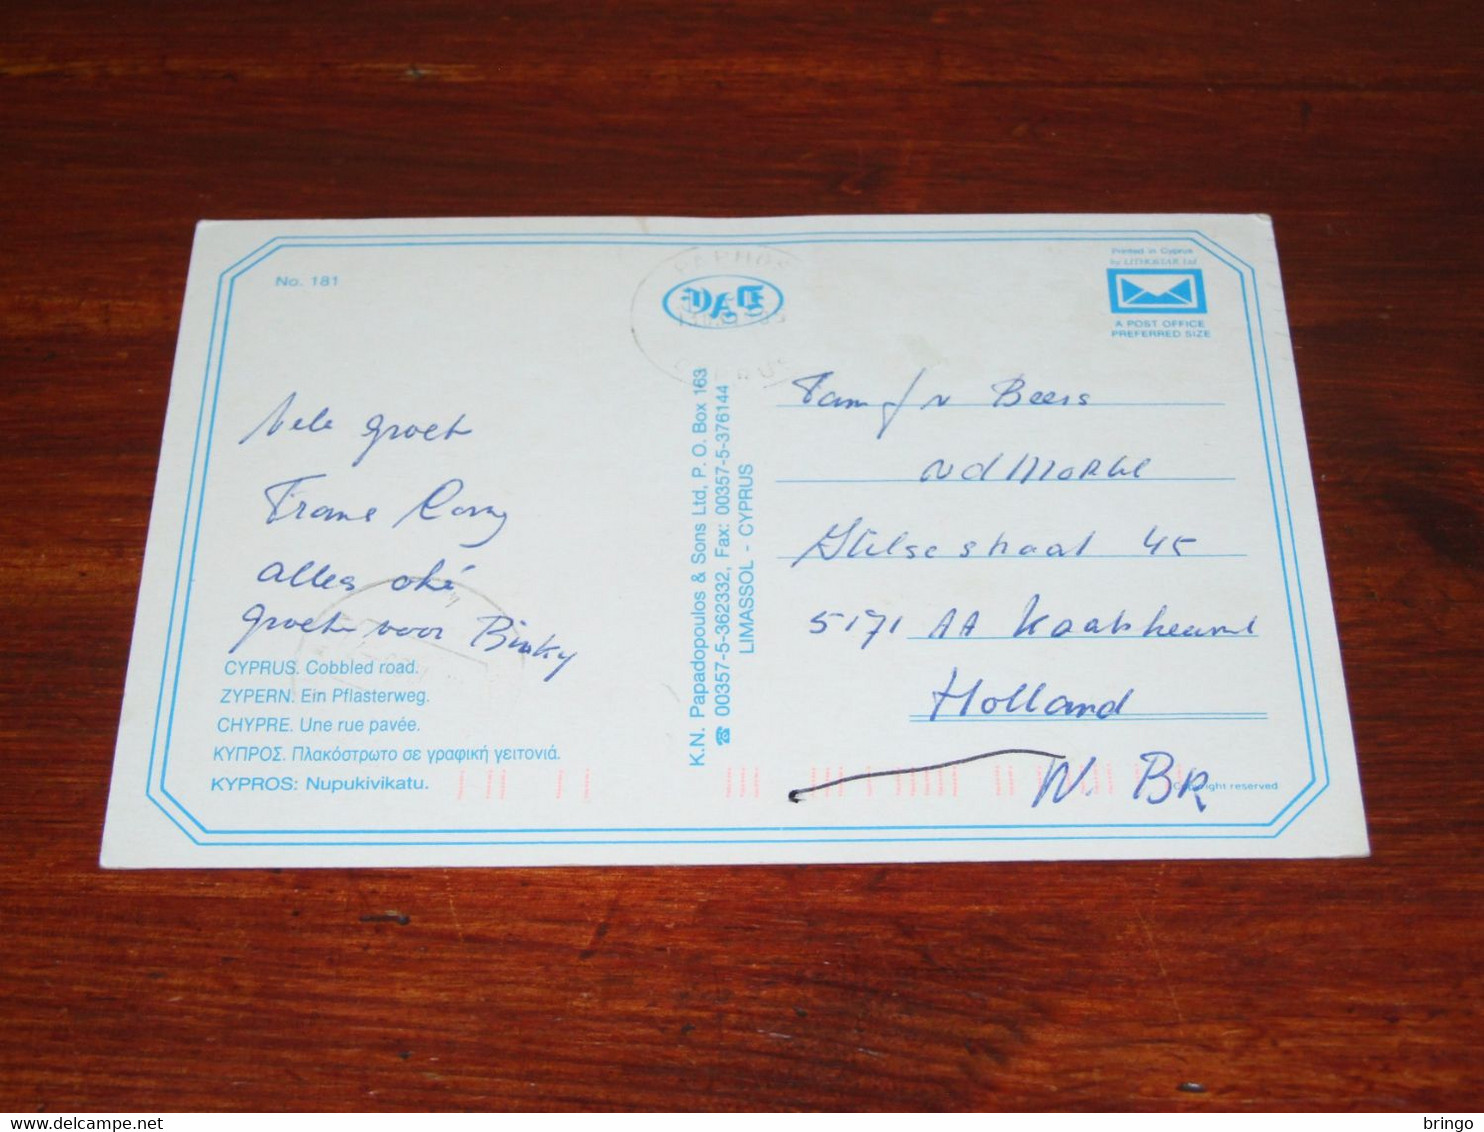 No. 181
Printed in Cyprus
by LITHOSTAR Ltd
A POST OFFICE
PREFERRED SIZE
PAPHOS
Vele groet
alles oké
groet voor Binky
CYPRUS. Cobbled road.
ZYPERN. Ein Pflasterweg.
CHYPRE. Une rue pavée.
ΚΥΠΡΟΣ. Πλακόστρωτο σε γραφική γειτονιά.
KYPROS: Nupukivikatu.
K.N. Papadopoulos & Sons Ltd, P. O. Box 163
☎ 00357-5-362332, Fax: 00357-5-376144
LIMASSOL - CYPRUS
Fam J v Beers
45
5171 AA Kaatsheuvel
Holland
N. BR
Copyright reserved
bringo